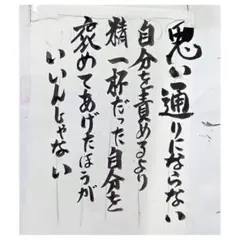 思い通りにならない
自分を責めるより
精一杯だった自分を
褒めてあげたほうが
いいんじゃない